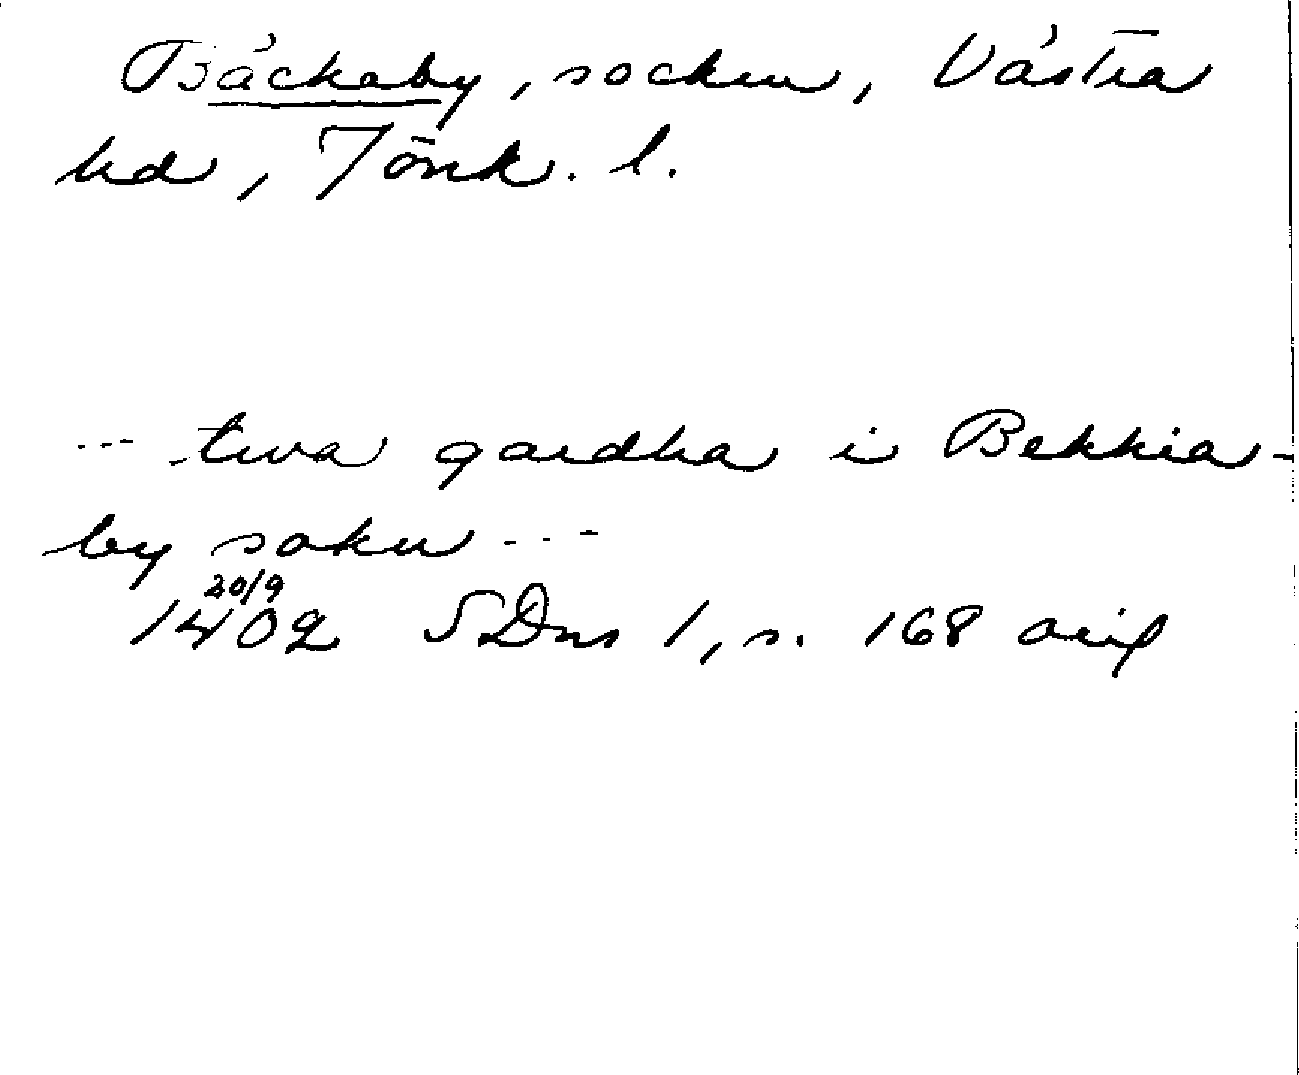 Bäckaby, socken, Västra
hd, Jönk. l.
--- twa gardha i Bekkia-
by sokn ---
20/9
1402 SDns 1, s. 168 orig